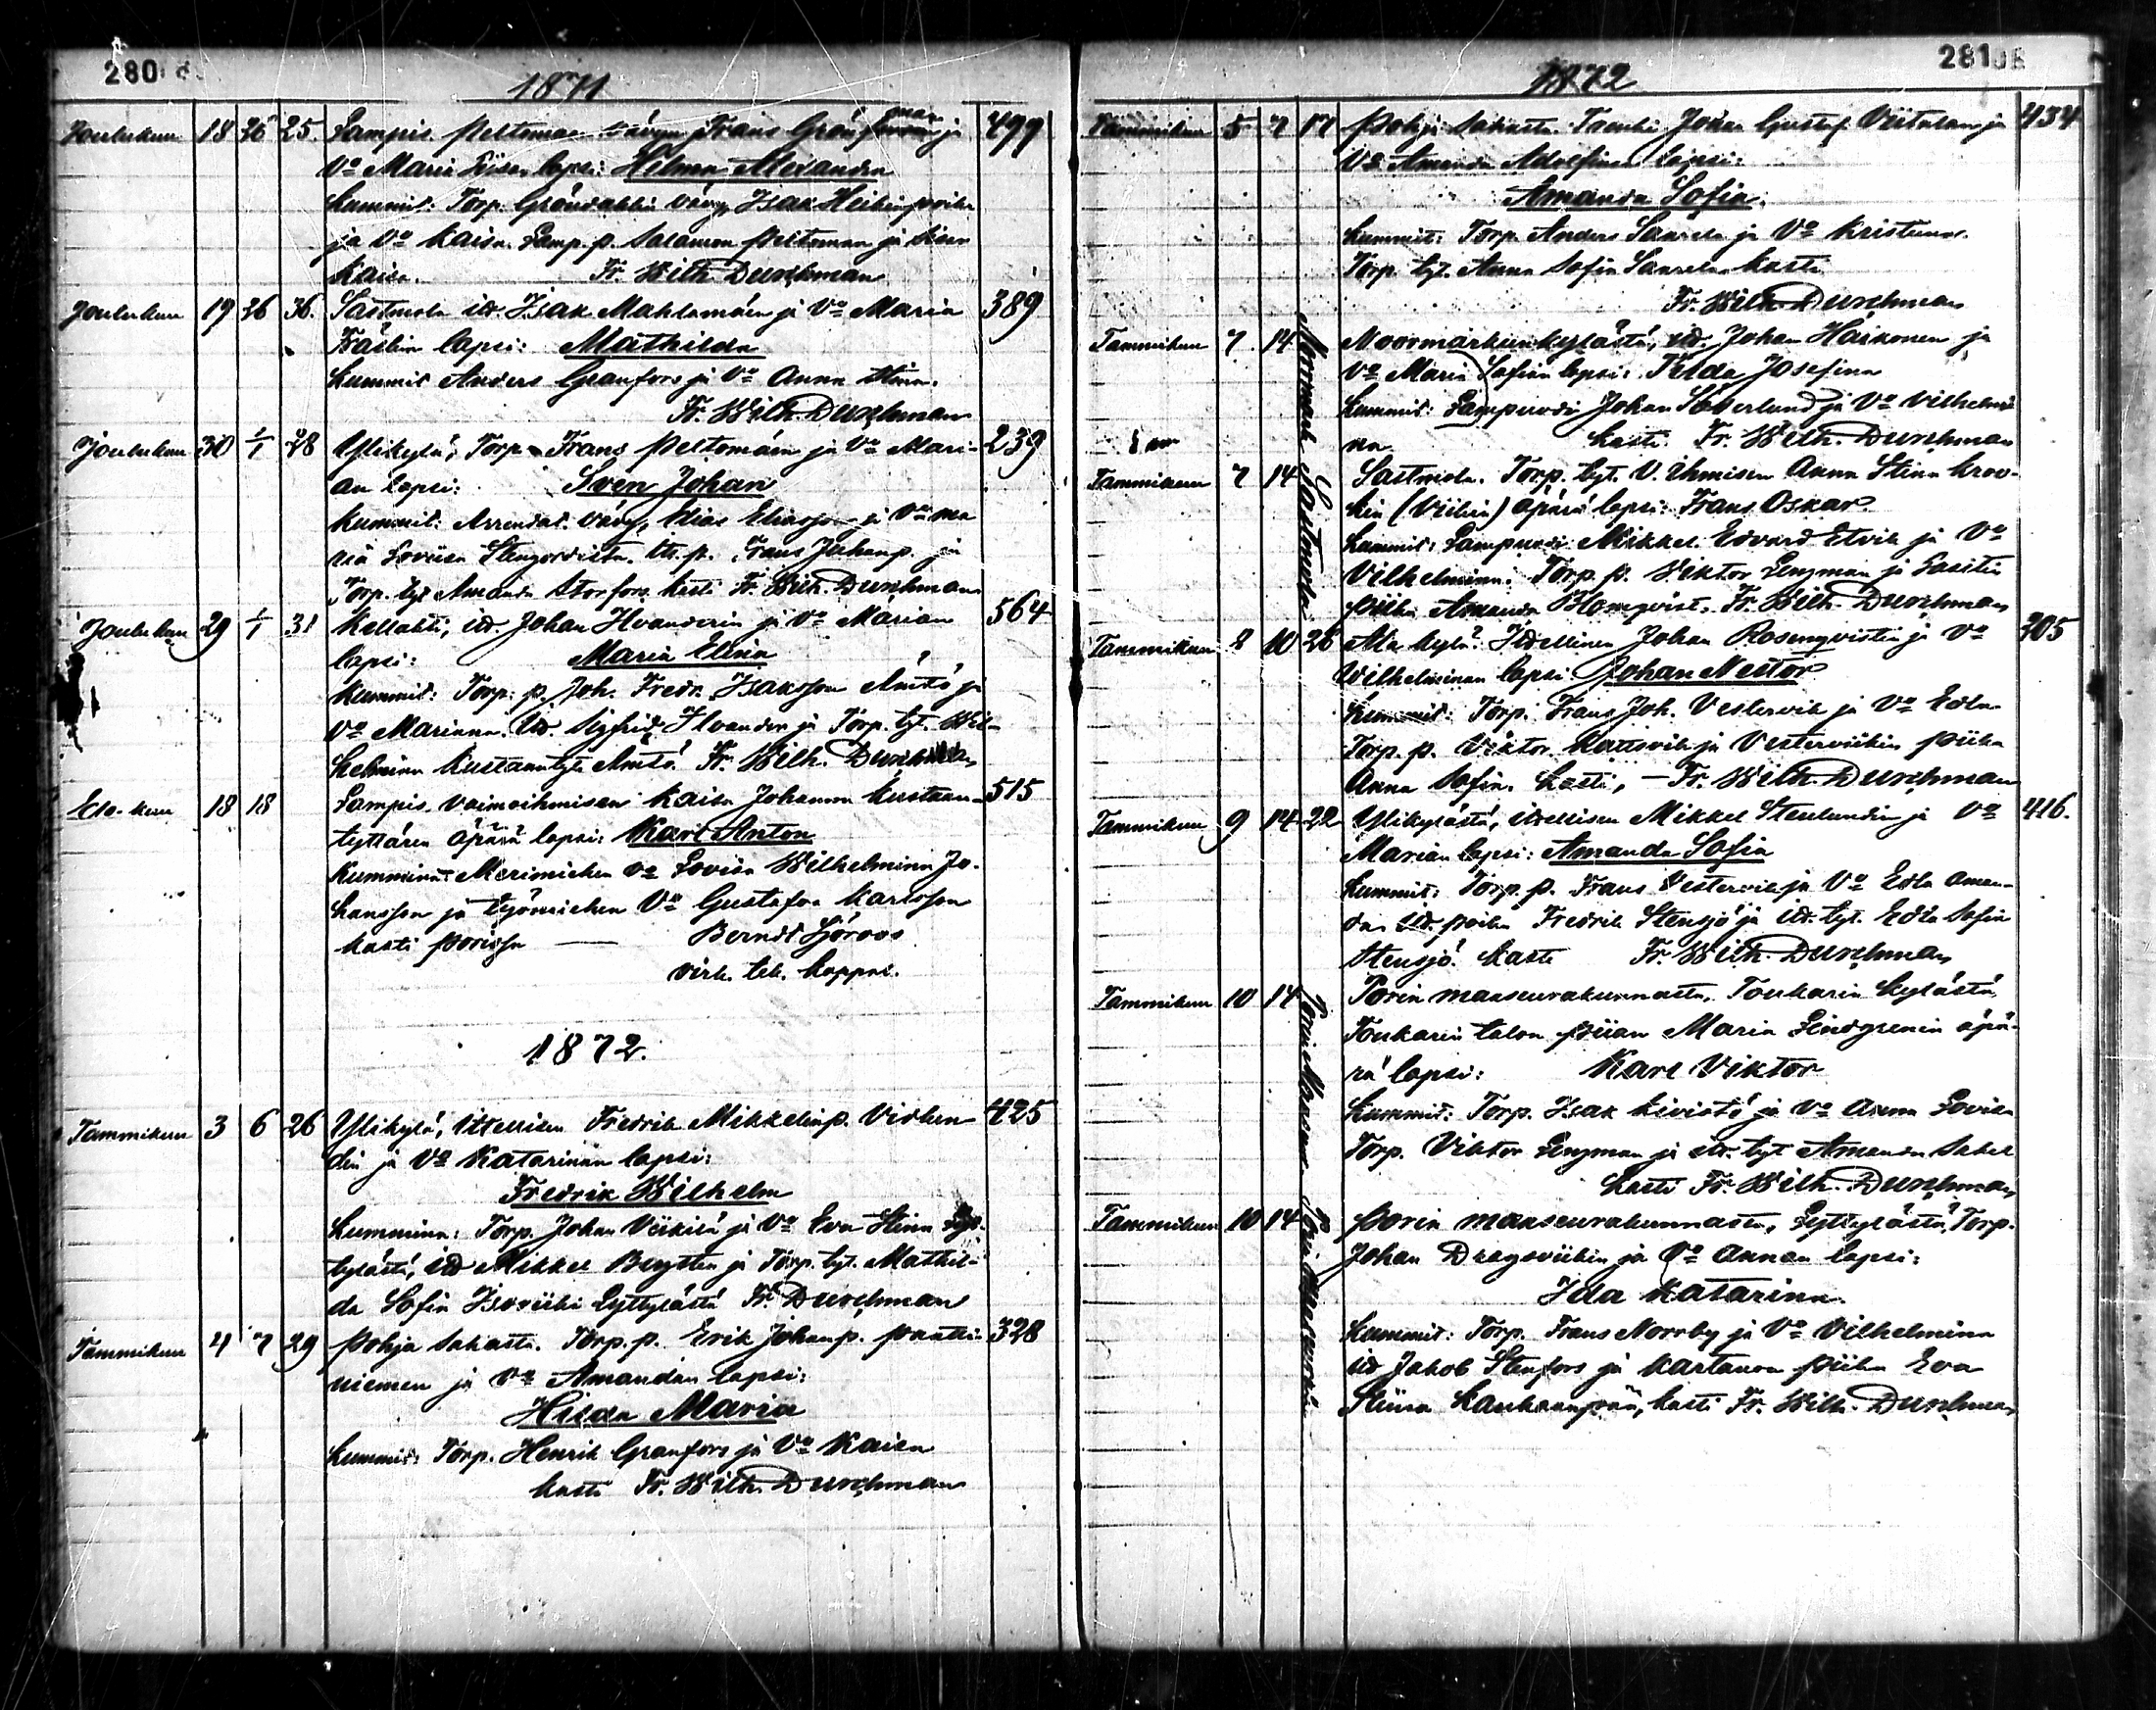 280
1871
Joulukuu 18 26 25. Lampis. Peltoman vävyn Frans Grön ja 499
Vo Maria Liisan lapsi: Helma Alexandra
Kummit: Torp. Gröndahlin vävy, Isak Heikinpoika
ja Vo Kaisa. Lamp. p. Salamon Peltoman ja sisar
Kaisa. Fr. Wilh. Durchman
Joulukuu 19 26 36. Sastmola itl. Isak Mahlamäen ja Vo Maria 389
lapsi: Mathilda
Kummit Anders Granfors ja Vo Anna Stina.
Fr. Wilh. Durchman
Joulukuu 30 1/1 28 Ylikylä, Torp. Frans Peltomäen ja Vo Mari- 239
an lapsi: Sven Johan
Kummit: Arrendat. vävy, Elias Eliasson ja Vo Ma
ria Lovisa p. Frans Juhanp. ja
Torp. tyt Amanda Storfors. Kasti Fr. Wilh. Durchman
Joulukuu 29 1/1 31 Kellahti, itl. Johan Ilvanderin ja Vo Marian 564
lapsi: Maria Elina
Kummit: Torp. p. Joh. Fredr. Isaksson Ämttö ja
Vo Marianna. Itl. Sigfrid Ilvander ja Torp. tyt. Wil-
helmina Kustaantyt Ämttö. Fr. Wilh. Durchman
Elo-kuu 18 18 Lampis. vaimoihmisen Kaisa Johanna Kustaan- 515
tyttären äpärä lapsi: Karl Anton
Kummina: Merimiehen vo Lovisa Wilhelmina Jo-
hansson ja työmiehen Vo Gustafva Karlsson
Kasti Porissa — Berndt Sjöroos
virk. teh. kappal.
1872.
Tammikuu 3 6 26 Ylikylä, Ittellisen Fredrik Mikkelinp. Vidlun 425
din ja Vo Katariinan lapsi:
Fredrik Wilhelm
Kummina: Torp. Johan Veikilä ja Vo Eva Stina
kylästä, itl Mikkel Bergsten ja Torp. tyt. Mathil-
da Sofia Isoviiki Lyttylästä Fr. Durchman
Tammikuu 4 7 29 Pohja Sahasta. Torp. p. Erik Johanp. 328
niemen ja Vo Amandan lapsi:
Hilda Maria
Kummit: Torp. Henrik Granfors ja Vo Kaisa
Kasti Fr. Wilh. Durchman
281
1872
Tammikuu 5 7 17 Pohja Sahasta. Johan Gustaf Viitalan ja 434
Vo Amanda Adolfinan lapsi:
Amanda Sofia.
Kummit: Torp. Anders Saarela ja Vo Kristiina.
Torp. tyt. Anna Sofia Saarela Kasti
Fr. Wilh. Durchman
Tammikuu 7 14 Noormarkunkylästä, itl. Johan Häikonen ja
Vo Maria Sofian lapsi: Josefina
Kummit: Lampuodi Johan Söderlund ja Vo Vilhelmi
na. Kasti. Fr. Wilh. Durchman
Tammikuu 7 14 Sastmola. Torp. tyt. V. Ihmisen Anna Stina
(Viikin) äpärä lapsi: Frans Oskar.
Kummit: Lampuodi Mikkel Edvard Etvik ja Vo
Vilhelmiina. Torp. p. Viktor Lengman ja
piika Amanda Blomqvist. Fr. Wilh. Durchman
Noormark Sastmola
Tammikuu 8 10 28 Ala kylä. Itellinen Johan Rosenqvistin ja Vo 305
Wilhelminan lapsi Johan Nestor
Kummit: Torp. Frans Joh. Vestervik ja Vo Edla
Torp. p. Viktor ja Vesterviikin piika
Anna Sofia. Kasti, — Fr. Wilh. Durchman
Tammikuu 9 14 22 Ylikylästä, itellisen Mikkel Stenlundin ja Vo 416.
Marian lapsi: Amanda Sofia
Kummit: Torp. p. Frans Vestervik ja Vo Edla Aman-
da. Itl. poika Fredrik Stensjö ja itl. tyt. Edla Sofia
Stensjö. Kasti Fr. Wilh. Durchman
Tammikuu 10 14 Porin maaseurakunnasta, Toukarin kylästä,
Toukarin talon piian Maria Lindgrenin äpä-
rä lapsi: Karl Viktor
Kummit: Torp. Isak Kivistö ja Vo Anna Lovisa
Torp. Viktor Lengman ja itl. tyt Amanda
Kasti Fr. Wilh. Durchman
Tammikuu 10 14 Porin maaseurakunnasta, Lyttylästä, Torp.
Johan Dragsviikin ja Vo Annan lapsi:
Ida Katarina.
Kummit: Torp. Frans Norrby ja Vo Vilhelmina
itl Jakob Stenfors ja Kartanon piika Eva
Stiina kasti Fr. Wilh. Durchman